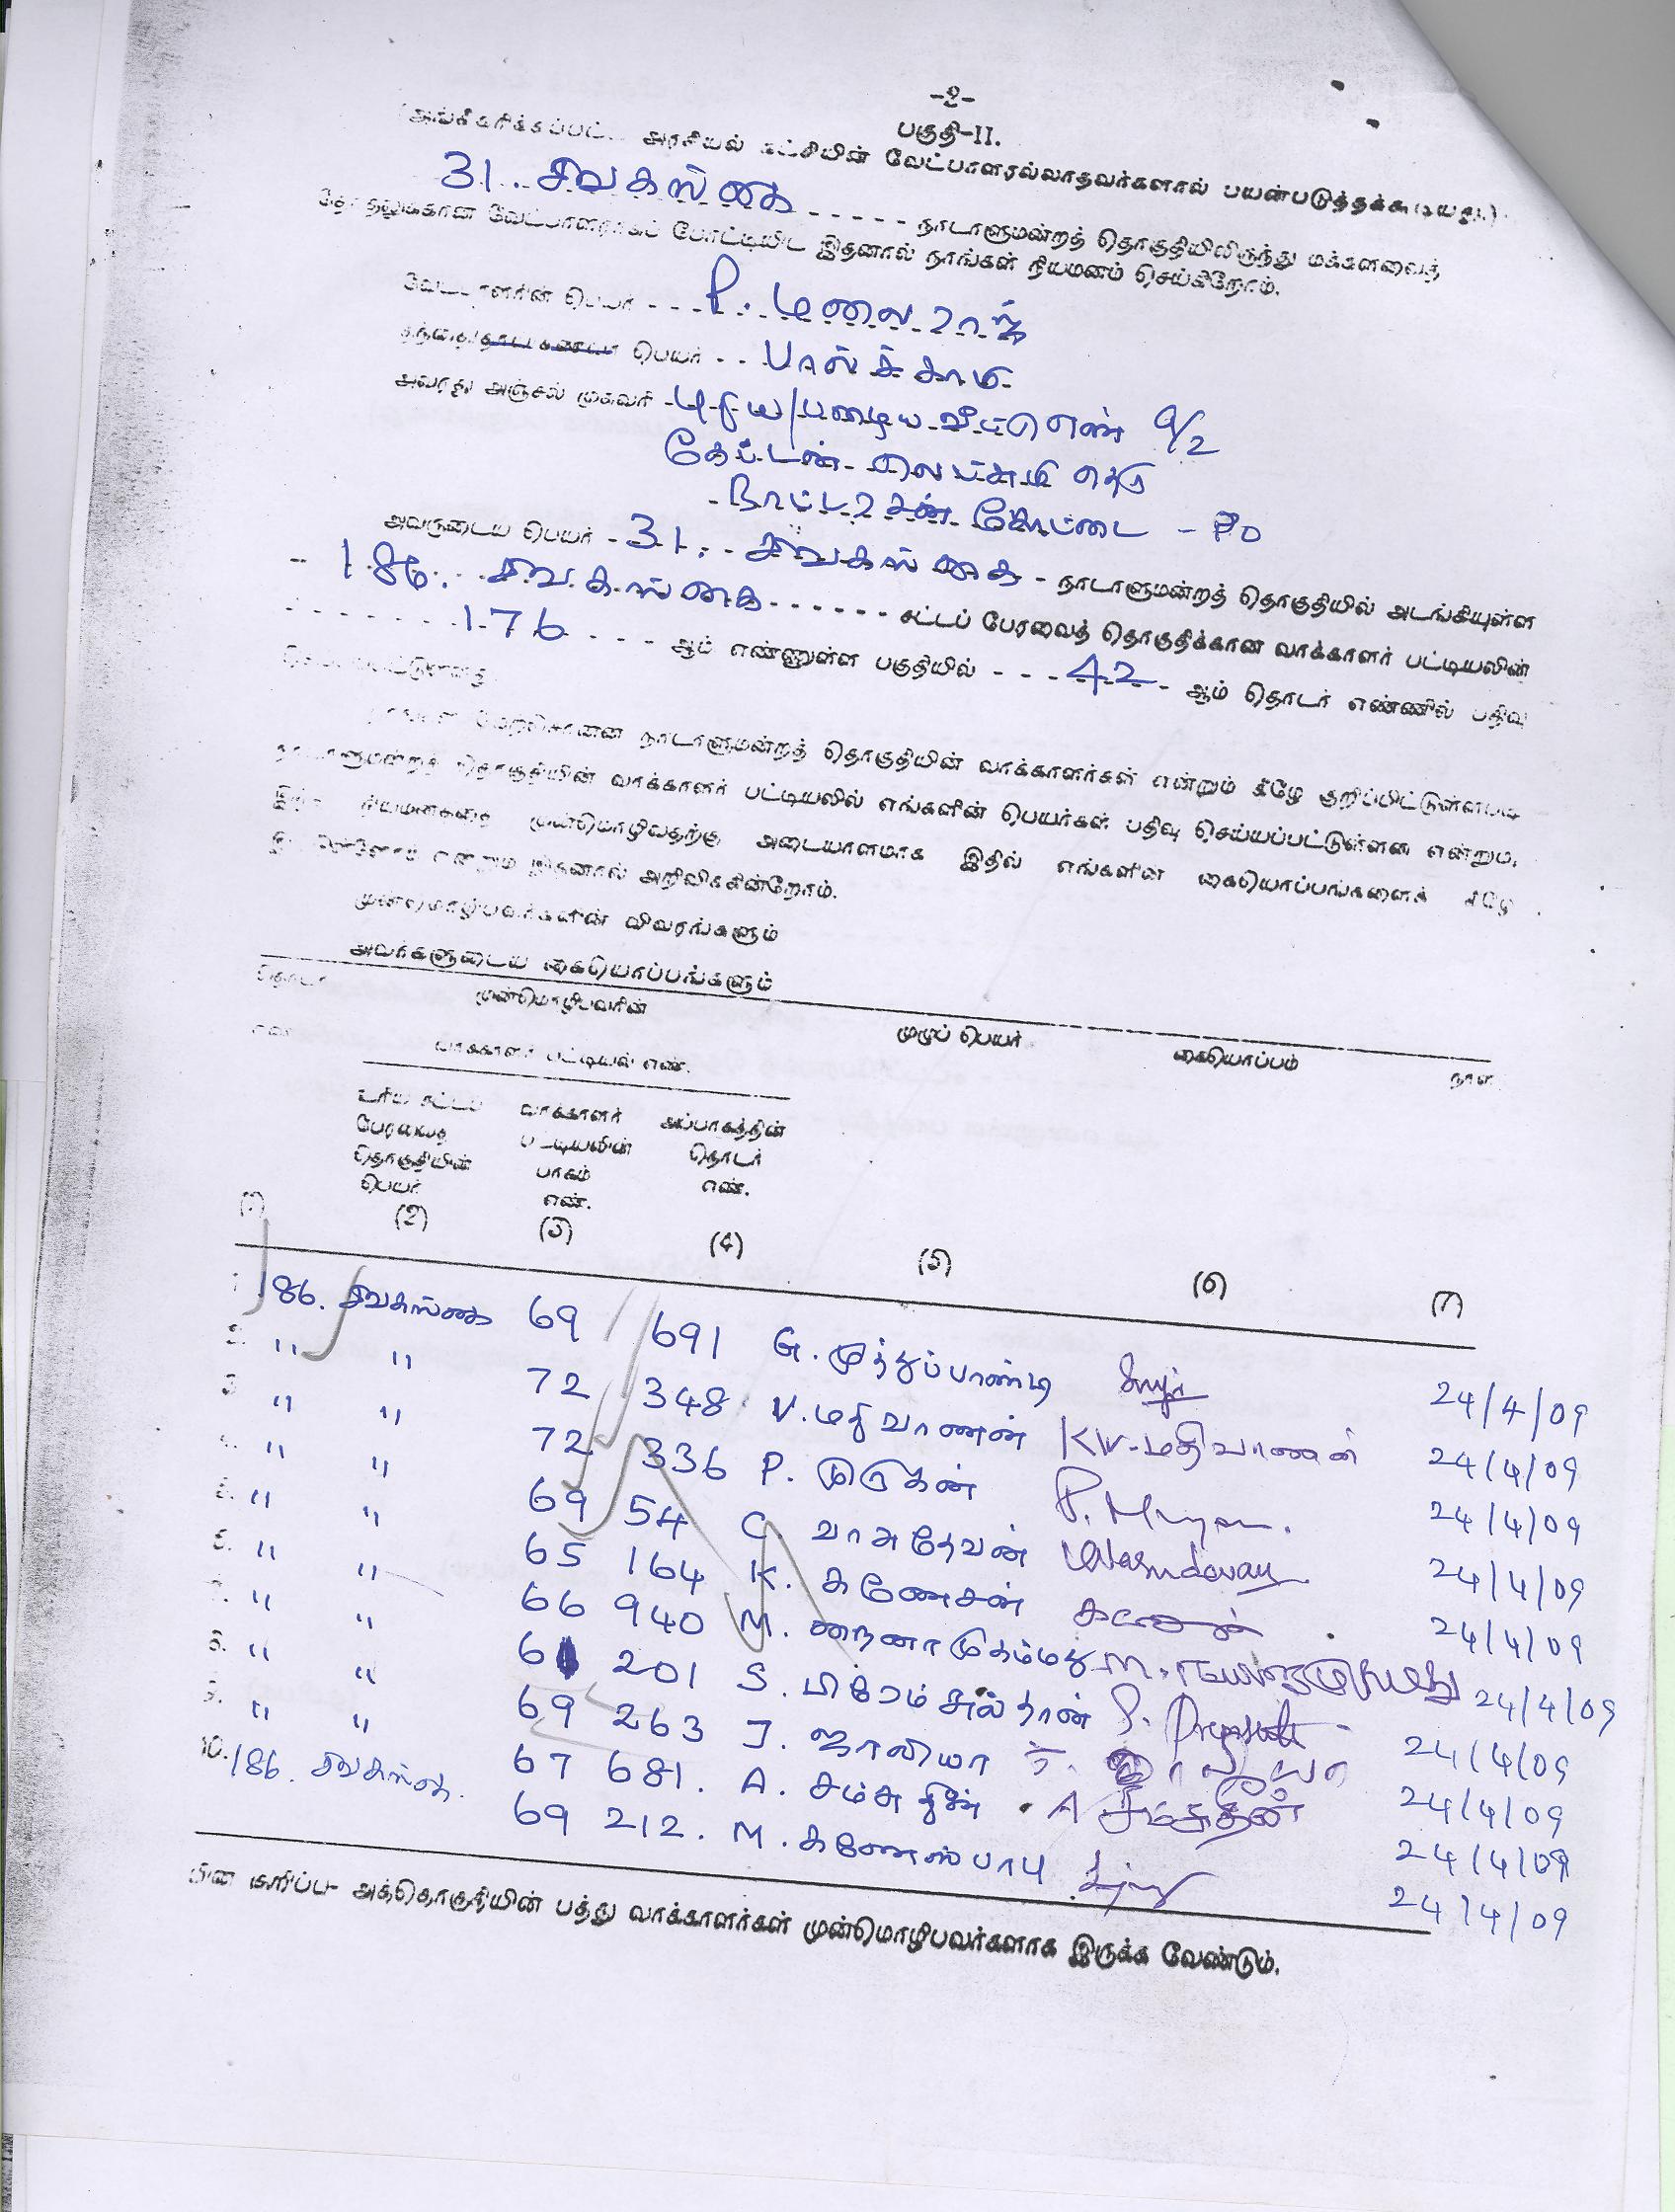 -2-
பகுதி-II.
(அங்கீகரிக்கப்பட்ட அரசியல் கட்சியின் வேட்பாளரல்லாதவர்களால் பயன்படுத்தக்கூடியது.)
31. சிவகங்கை - - - - - நாடாளுமன்றத் தொகுதியிலிருந்து மக்களவைத்
தேர்தலுக்கான வேட்பாளராகப் போட்டியிட இதனால் நாங்கள் நியமனம் செய்கிறோம்.
வேட்பாளரின் பெயர் - - - P. மலைராஜ்
பெயர் - - பால்க்காடி
அவரது அஞ்சல் முகவரி - புதிய/பழைய வீட்டு எண் 9/2
கேப்டன் லெட்சுமி தெரு
நாட்டரசன் கோட்டை - PO
அவருடைய பெயர் - 31. சிவகங்கை - நாடாளுமன்றத் தொகுதியில் அடங்கியுள்ள
186. சிவகங்கை - - - - - - சட்டப் பேரவைத் தொகுதிக்கான வாக்காளர் பட்டியலின்
176 - - - ஆம் எண்ணுள்ள பகுதியில் - - - 42 - ஆம் தொடர் எண்ணில் பதிவு
செய்யப்பட்டுள்ளது.
நாங்கள் மேற்சொன்ன நாடாளுமன்றத் தொகுதியின் வாக்காளர்கள் என்றும் கீழே குறிப்பிட்டுள்ளபடி
நாடாளுமன்றத் தொகுதியின் வாக்காளர் பட்டியலில் எங்களின் பெயர்கள் பதிவு செய்யப்பட்டுள்ளன என்றும்,
இந்த நியமனத்தை முன்மொழிவதற்கு அடையாளமாக இதில் எங்களின் கையொப்பங்களைக் கீழே
என்றும் இதனால் அறிவிக்கின்றோம்.
முன்மொழிபவர்களின் விவரங்களும்
அவர்களுடைய கையொப்பங்களும்
தொடர் முன்மொழிபவரின் முழுப் பெயர் கையொப்பம் நாள்
எண் வாக்காளர் பட்டியல் எண்.
உரிய சட்டப் வாக்காளர் அப்பாகத்தின்
பேரவைத் பட்டியலின் தொடர்
தொகுதியின் பாகம் எண்.
பெயர் எண்.
(1) (2) (3) (4) (5) (6) (7)
1 186. சிவகங்கை 69 691 G. முத்துப்பாண்டி 24/4/09
2. " " 72 348 V. மதிவாணன் KV. மதிவாணன் 24/4/09
3 " " 72 336 P. முருகன் P. Murugan. 24/4/09
4. " " 69 54 C. வாசுதேவன் Vasudevan 24/4/09
5. " " 65 164 K. கணேசன் 24/4/09
6. " " 66 940 M. நைனா முகம்மது 24/4/09
7. " " 61 201 S. பிரேம் சுல்தான் 24/4/09
8. " " 69 263 J. ஜாலியா 24/4/09
9. " " 67 681. A. சம்சுதீன் A சம்சுதீன் 24/4/09
10. 186. சிவகங்கை. 69 212. M. கணேஸ்பாபு 24/4/09
பின் குறிப்பு- அத்தொகுதியின் பத்து வாக்காளர்கள் முன்மொழிபவர்களாக இருக்க வேண்டும்.